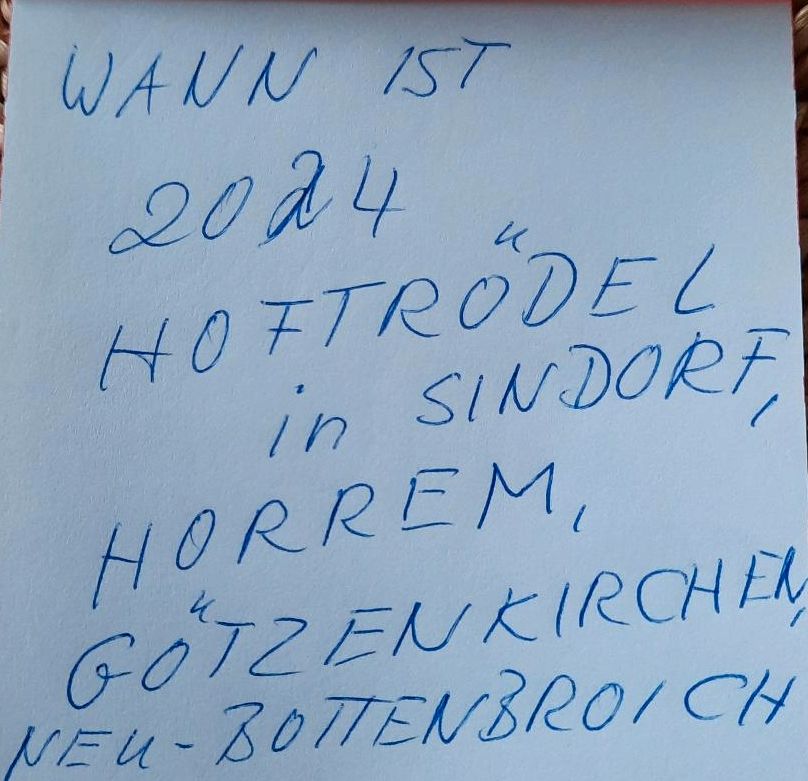 WANN IST
2024
HOFTRÖDEL
in SINDORF,
HORREM,
GÖTZENKIRCHEN,
NEU-BOTTENBROICH